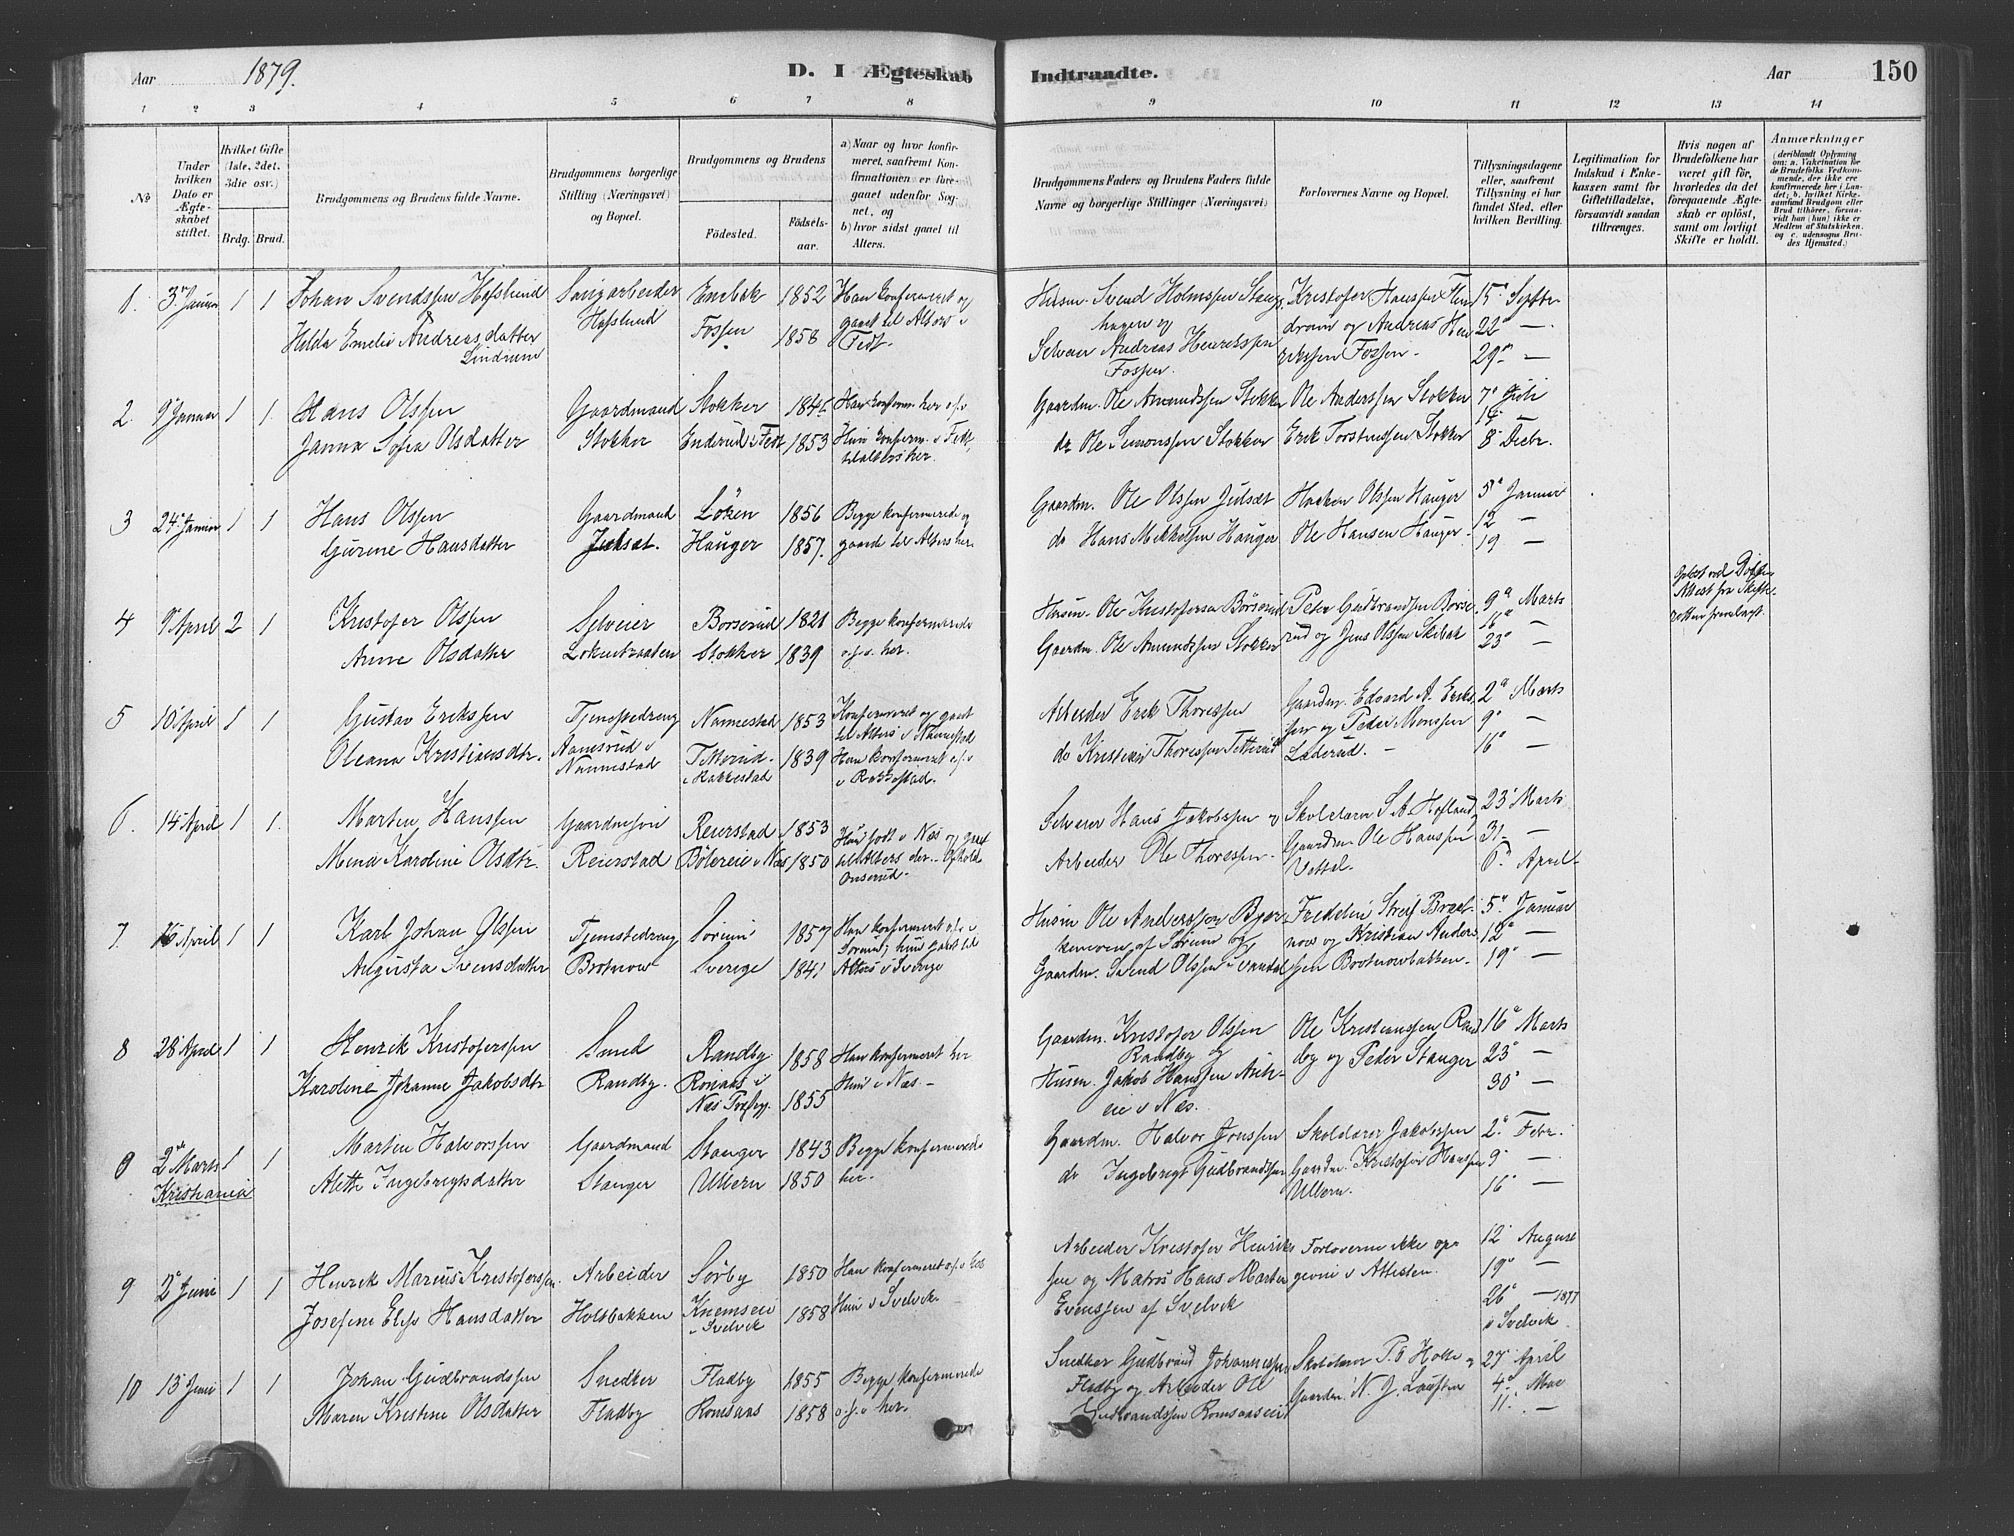 Aar 1879.
D. I Ægteskab Indtraadte.
Aar 150
1 2 3 4 5 6 7 8 9 10 11 12 13 14
No
Under hvilken Dato er Ægteskabet stiftet.
Hvilket Gifte (1ste, 2det, 3die osv.)
Brdg. Brud.
Brudgommens og Brudens fulde Navne.
Brudgommens borgerlige Stilling (Næringsvei) og Bopæl.
Brudgommens og Brudens
Fødested.
Fødselsaar.
a) Naar og hvor konfirmeret, saafremt Konfirmationen er foregaaet udenfor Sognet, og
b) hvor sidst gaaet til Alters.
Brudgommens Faders og Brudens Faders fulde Navne og borgerlige Stillinger (Næringsvei)
Forlovernes Navne og Bopæl.
Tillysningsdagene eller, saafremt Tillysning ei har fundet Sted, efter hvilken Bevilling.
Legitimation for Indskud i Enkekassen samt for Giftetilladelse, forsaavidt saadan tiltrænges.
Hvis nogen af Brudefolkene har været gift før, hvorledes da det foregaaende Ægteskab er opløst, samt om lovligt Skifte er holdt.
Anmærkninger
(deriblandt Oplysning om: a. Vakcination for de Brudefolks Vedkommende, der ikke ere konfirmerede her i Landet; b. hvilket Kirkesamfund Brudgom eller Brud tilhører, forsaavidt han (hun) ikke er Medlem af Statskirken og c. udensogns Brudes Hjemsted.)
1. 3 Januar 1 1 Johan Svendssen Hafslund
Hilda Emelie Andreasdatter
Lindrum
Saugarbeider
Hafslund
Enebak 1852
Fossen 1858
Han konfirmeret og
gaaet til Alters i
Fedt.
Husm. Svend Holmssen Stang
hagen og
Selveier Andreas Henrikssen
Fossen.
Kristofer Hanssen
og Andreas Hen
rikssen Fossen.
15 Septbr
22 —
29 —
2. 9 Januar 1 1. Hans Olssen
Janna Sofia Olsdatter
Gaardmand
Stokker
Stokker 1846
Enderud i Fedt 1853
Han konfirm. her o.s.v
Hun konfirm. i Fedt,
til alters her.
Gaardm. Ole Amundssen Stokker
do Ole Simonssen Stokker
Ole Anderssen Stokker
Erik Torstenssen Stokker
7 Juli
14
8 Decbr.
3 24 Januar 1 1 Hans Olssen
Gurine Hansdatter
Gaardmand
Julsæt.
Løken 1856
Hauger 1857.
Begge konfirmerede og
gaaede til Alters her.
Gaardm. Ole Olssen Julsæt
do Hans Mikkelsen Hauger
Haakon Olssen Hauger
Ole Hansen Hauger.
5 Januar
12 —
19 —
4 9 April 2 1 Kristofer Olssen
Anne Olsdatter
Selveier
Løkenbraaten
Børserud 1821
Stokker 1839
Begge konfirmerede
o.s.v. her.
Husm. Ole Kristofersen Børserud
Gaardm. Ole Amundssen Stokker
Peder Gudbrandssen Børse
rud og Jens Olssen Skibak
9 Marts
16 —
23 —
Attest fra Skifte
retten fremlagt.
5 10 April 1 1 Gustav Erikssen
Oleana Kristiansdtr.
Tjenestedreng
Aamsrud i
Nannestad
Nannestad 1853
Tetterud
i Rakkestad 1839
Konfirmeret og gaaet
til Alters i Nannestad
Hun konfirmeret o.s.v
i Rakkestad.
Arbeider Erik Thoressen
do Kristian Thoressen Tetterud
Gaardm. Edvard A. Eriks
sen og Peder Monssen
Laderud. —
2 Marts
9 —
16 —
6. 14 April 1 1. Marten Hanssen
Mina Karoline Olsdtr.
Gaardmand
Reierstad
Reierstad 1853
Bølereie i Næs 1850
Hun født i Næs og gaaet
til Alters der.
Onserud.
Selveier Hans Jakobssen og
Arbeider Ole Thoressen.
Skolelærer S. A. Hofland,
Gaardm. Ole Hanssen
Vettal.
23 Marts
31 —
6 April
7 15 April 1 1 Karl Johan Olssen
Augusta Svensdatter
Tjenestedreng
Brotnow
Sørum 1857
Sverige 1841
Han konfirmeret o.s.v i
Sørum, hun gaaet til
Alters i Sverige
Husm Ole Anderssen Bjer
keneven af Sørum og
Gaardm. Svend Olssen i
Fredelin Streif Brot
now og Kristian Anders
sen Brotnowbakken.
5 Januar
12 —
19 —
8 28 April 1 1 Henrik Kristoferssen
Karoline Johanne Jakobsdtr
Smed
Randby.
Randby 1858
Romaas i
Næs 1855
Han konfirmeret her
Hun i Næs —
Gaardm. Kristofer Olssen
Randby og
Husm. Jakob Hanssen
eie i Næs.
Ole Kristianssen Rand
by og Peder Stanger
16 Marts
23 —
30 —
2 Marts
Kristiania 1 1 Martin Halvorssen
Alette Ingebrigtsdatter
Gaardmand
Stanger
Stanger 1843
Ullern 1850
Begge konfirmerede
her.
Gaardm. Halvor Jonssen
do Ingebrigt Gudbrandssen
Skolelærer Jakobssen
Gaardm. Kristofer Hanssen
Ullern.
2 Febr.
9 —
16 —
9 2 Juni 1 1 Henrik Marius Kristoferssen.
Josefine Elise Hansdatter
Arbeider
Holtbakken
Sørby 1850
Knemseie
i Svelvik 1858
Han konfirmeret o.s.v her
Hun i Svelvik
Arbeider Kristofer Henriks
sen og Matros Hans Marten
Evenssen af Svelvik
Forloverne ikke op
givne i Attesten.
12 August
19 —
26 — 1877
i Svelvik.
10 13 Juni 1 1 Johan Gudbrandssen
Maren Kristine Olsdatter
Snedker
Fladby
Fladby 1855
Romsaas 1858
Begge konfirmerede
o.s.v her.
Snedker Gudbrand Johannessen
Fladby og Arbeider Ole
Gudbrandssen Romsaaseie
Skolelærer P. O Holte og
Gaardm. N. J.
27 April
4 Mai
11 —